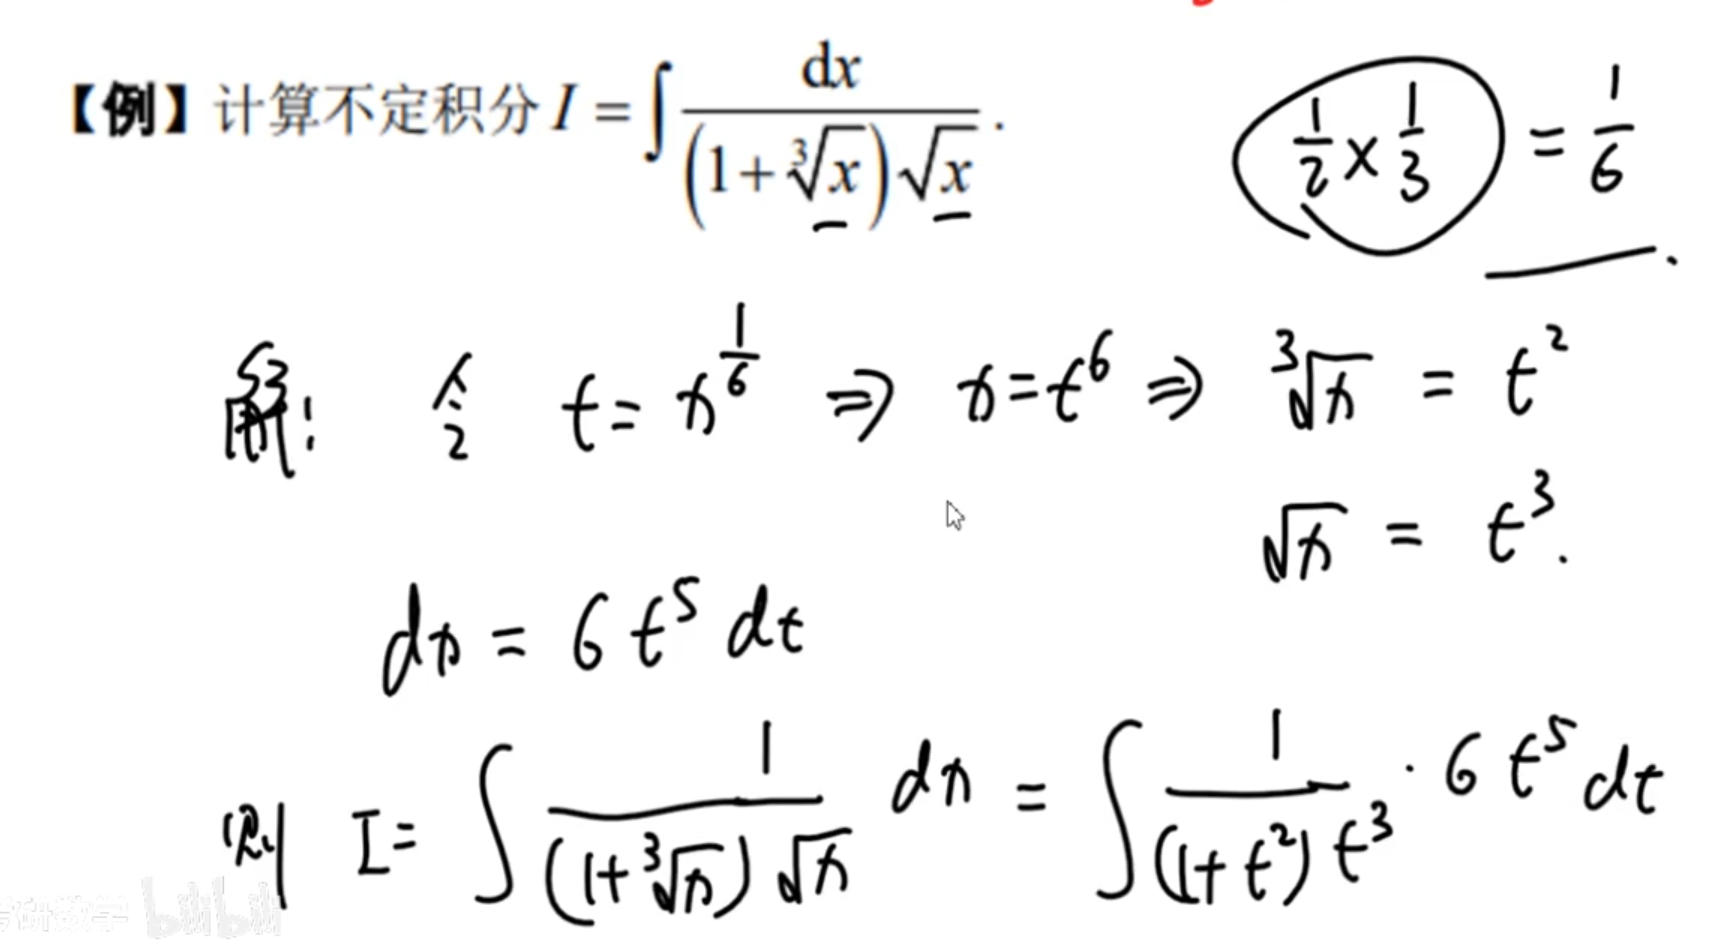 【例】计算不定积分 I = ∫ dx / ((1+∛x)√x) .
1/2 × 1/3 = 1/6 .
解: 令 t = x^(1/6) ⇒ x = t^6 ⇒ ∛x = t^2
√x = t^3 .
dx = 6 t^5 dt
则 I = ∫ 1 / ((1+∛x)√x) dx = ∫ 1 / ((1+t^2) t^3) · 6 t^5 dt
考研数学 bilibili